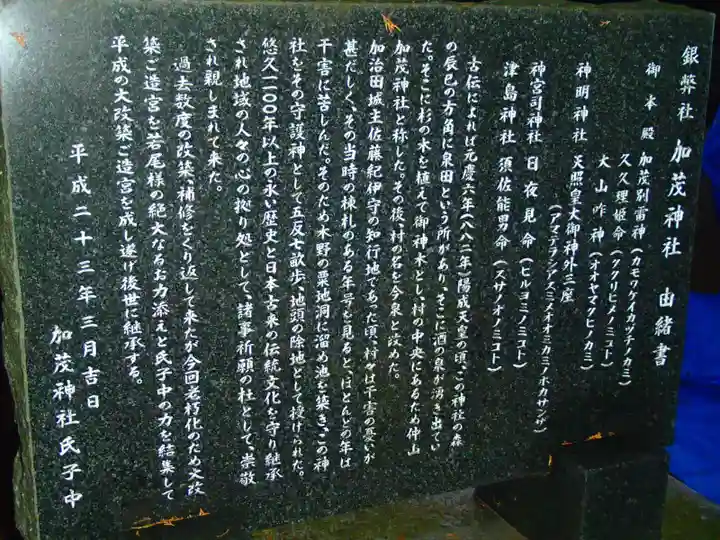 銀幣社 加茂神社 由緒書
御本殿 加茂別雷神(カモワケイカヅチノカミ)
久久理姫命(ククリヒメノミコト)
大山咋神(オオヤマクヒノカミ)
神明神社 天照皇大御神外三座
(アマテラシアスミメオオミカミノホカサンザ)
神宮司神社 日夜見命(ヒルヨミノミコト)
津島神社 須佐能男命(スサノオノミコト)
古伝によれば元慶六年(八八二年)陽成天皇の頃、この神社の森
の辰巳の方角に泉田という所があり、そこに酒の泉が湧き出てい
た。そこに杉の木を植えて御神木とし、村の中央にあるため仲山
加茂神社と称した。その後、村の名を今泉と改めた。
加治田城主佐藤紀伊守の知行地であった頃、村々は干害の憂いが
甚だしく、その当時の棟札のある年号を見ると、ほとんどの年は
干害に苦しんだ。そのため木野の粟地洞に溜め池を築き、この神
社をその守護神として五反七畝歩、地頭の除地として授けられた。
悠久一一〇〇年以上の永い歴史と日本古来の伝統文化を守り継承
され地域の人々の心の拠り処として、諸事祈願の社として、崇敬
され親しまれて来た。
過去数度の改築、補修をくり返して来たが今回老朽化のため大改
築ご造宮を若尾様の絶大なるお力添えと氏子中の力を結集して
平成の大改築ご造宮を成し遂げ後世に継承する。
平成二十三年三月吉日
加茂神社氏子中